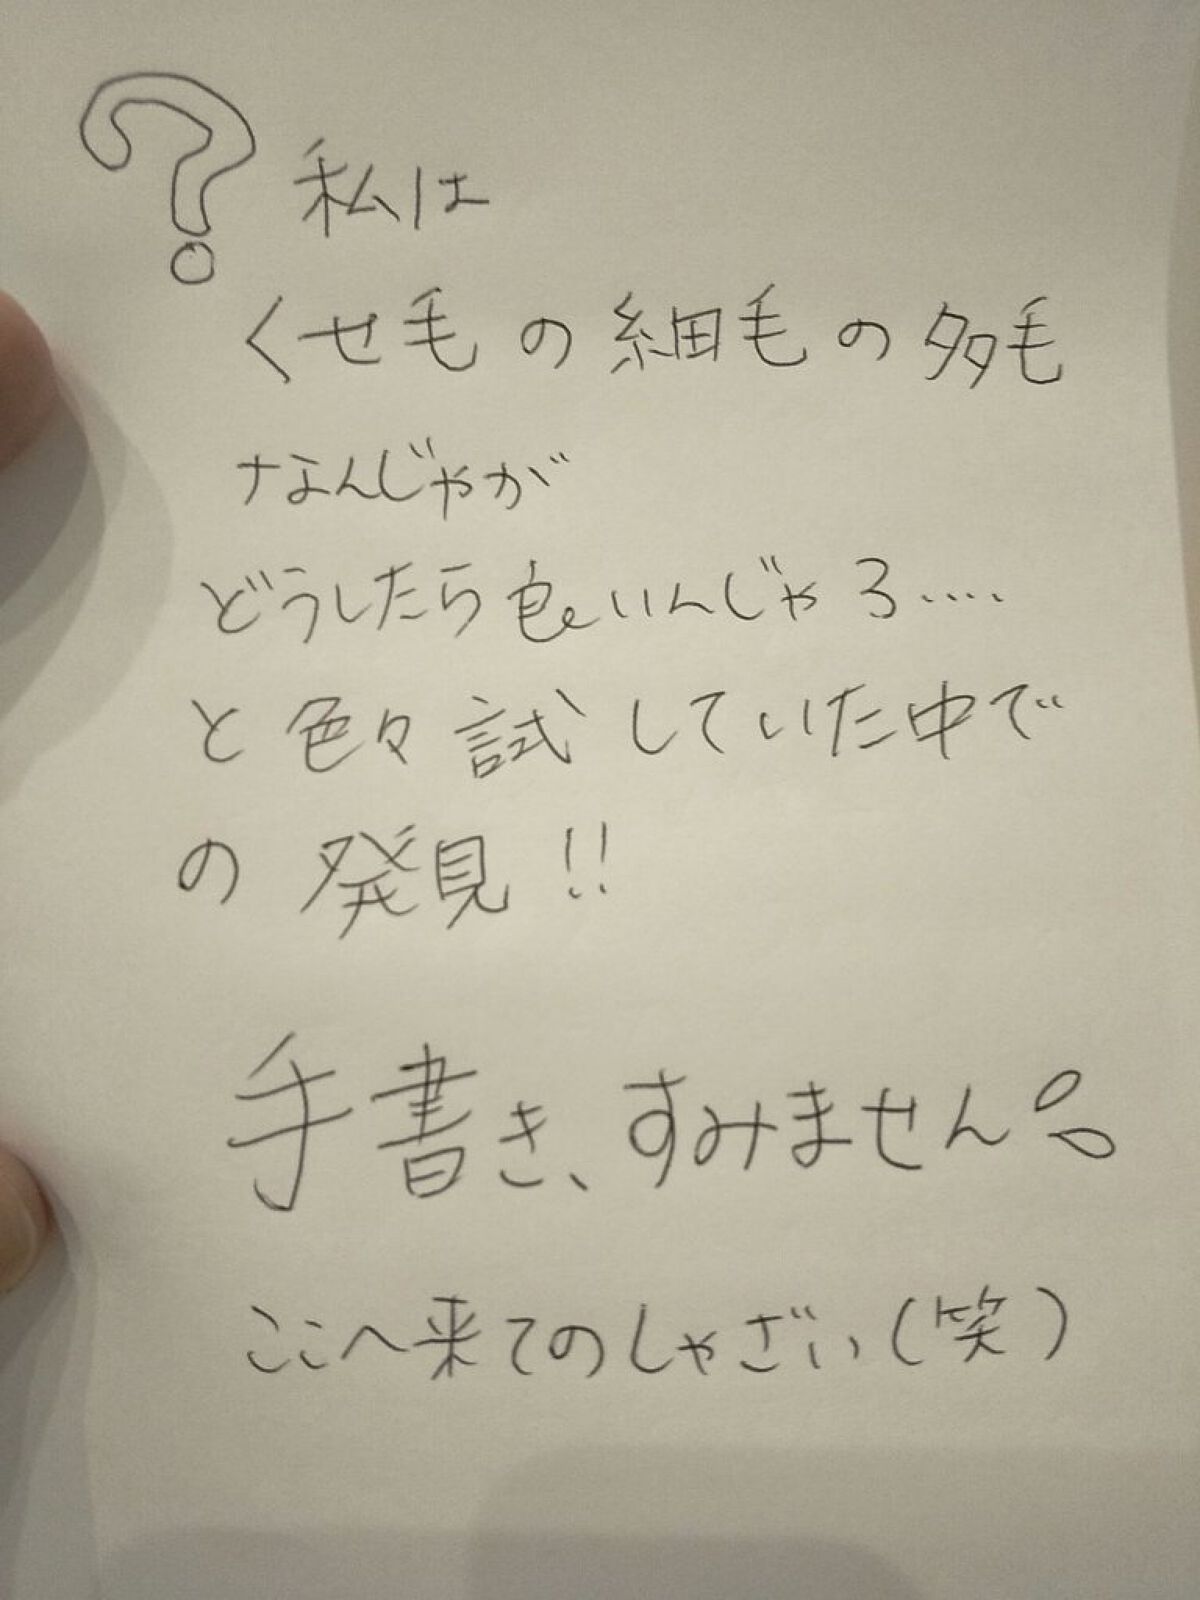 ?私は
くせ毛の細毛の多毛
なんじゃが
どうしたら良いんじゃろ....
と色々試していた中で
の発見!!
手書き、すみません
ここへ来てのしゃざい(笑)